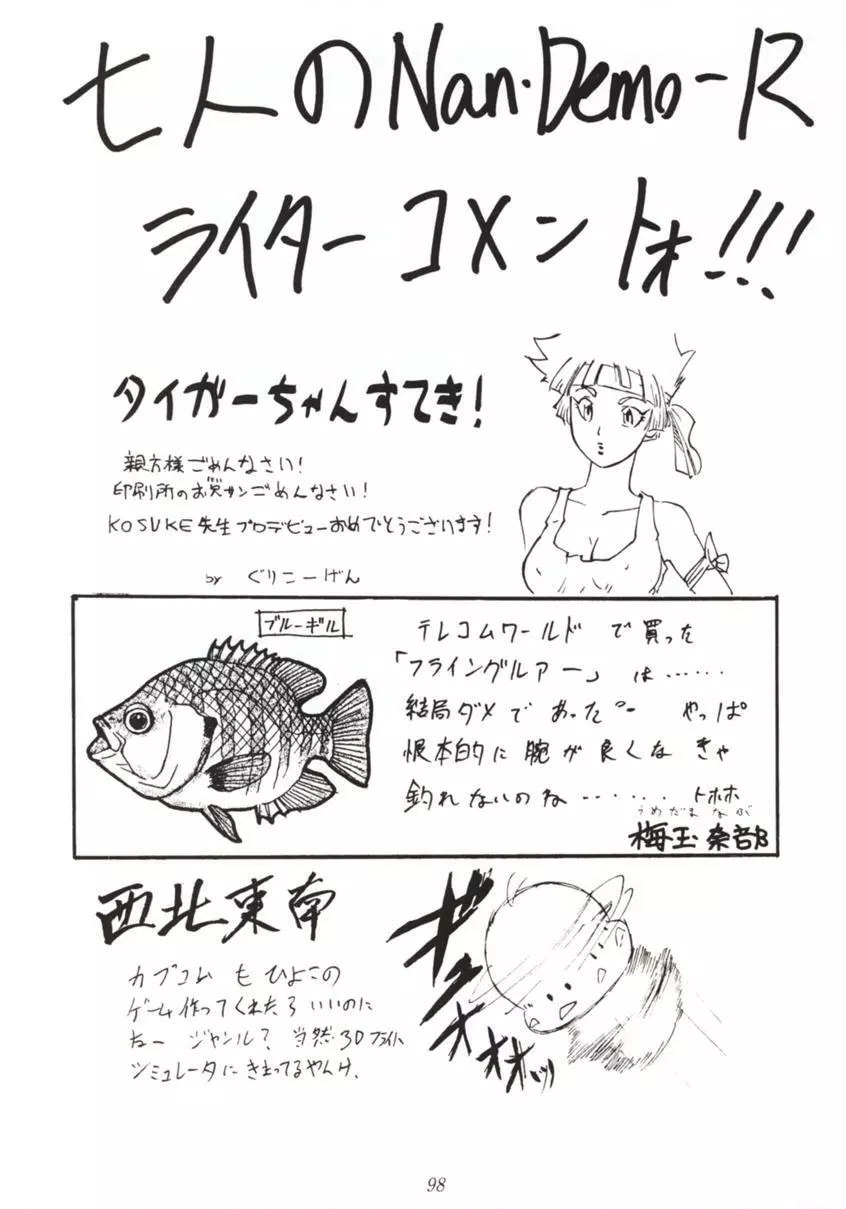 七人のNan・Demo-R
ライターコメントォ!!!
タイガーちゃんすてき!
親方様ごめんなさい!
印刷所のお貿サンごめんなさい!
KOSUKE先生プロデビューおめでとうございます!
by ぐりこーげん
ブルーギル
テレコムワールド で買った
「フライングルアー」 は……
結局ダメであった。 やっぱ
根本的に腕が良くなきゃ
釣れないのね……… トホホ
うめだまなぶ
梅玉奈部
西北東南
カプコムもひよこの
ゲーム作ってくれたらいいのに
なー ジャンル? 当然・3Dフライト
シミュレータにきまってるやんけ。
ギュオオオオッ
98